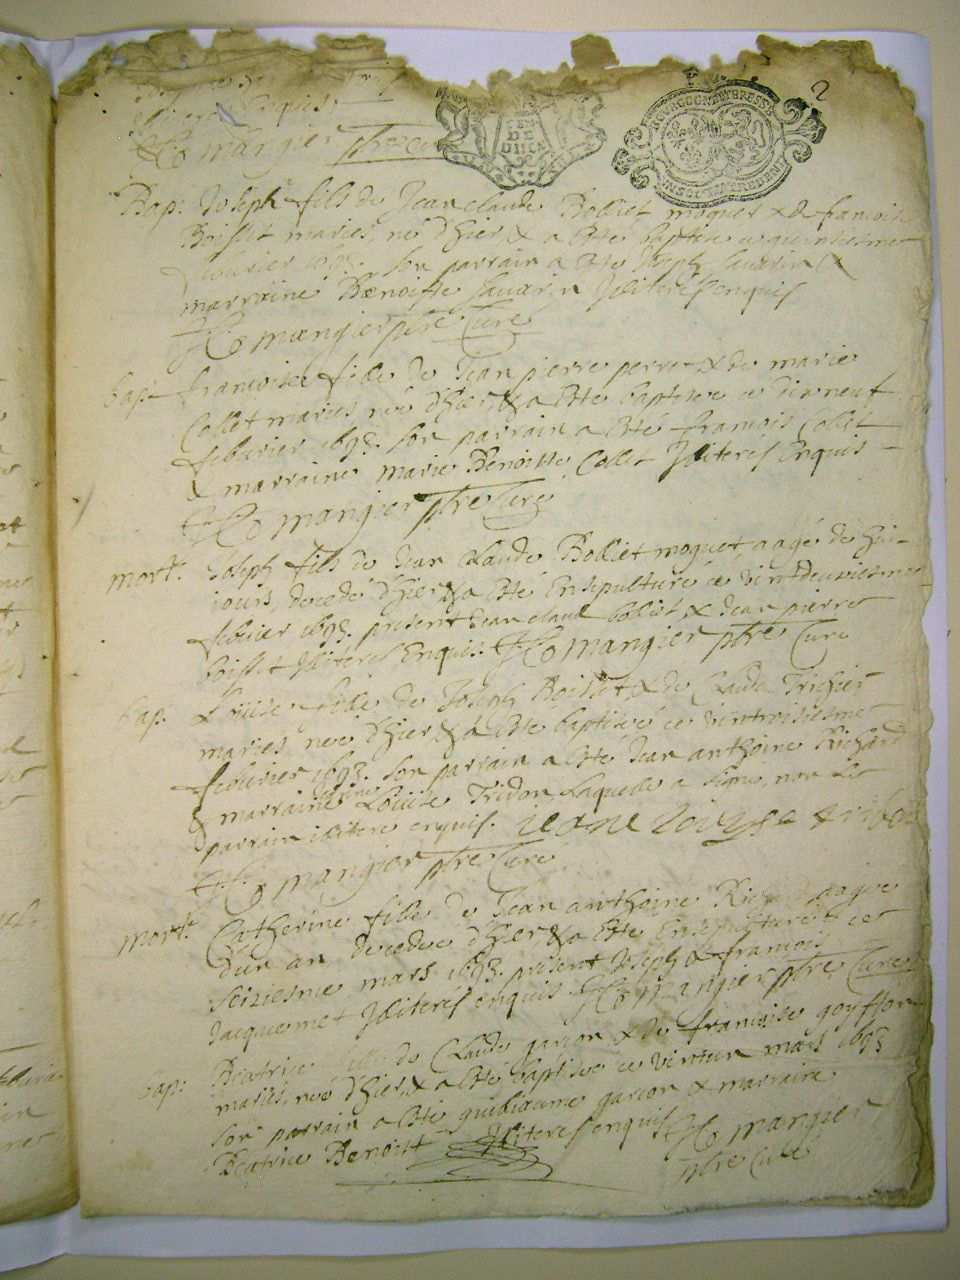 2
enquis
mangier ptre curé
BOURGOGNE ET BRESSE
DE
Bap: Joseph fils de Jean claude Bolliet moquet & de francoise
Boisset mariés né d'hier & a esté baptisé ce quinsiesme
febvrier 1693. Son parrain a esté Joseph Savarin &
marraine Benoiste Savarin Iliterés enquis
mangier ptre Curé
bap: francoise fille de Jean pierre perret & de marie
Collet mariés née d'hier & a esté baptisée ce dixneuf
febvrier 1693. Son parrain a esté francois Collet
& marraine marie Benoiste Collet Iliterés Enquis
mangier ptre Curé
mort. Joseph fils de Jean Claude Bolliet moquet aagé de huit
jours, decedé d'hier & a esté Ensepulturé ce vintdeuxiesme
febvrier 1693. présent Jean claude bolliet & Jean pierre
boisset Iliterés Enquis. mangier ptre Curé
bap: Louise fille de Joseph Boisset & de Clauda Trichier
mariés, née d'hier & a esté baptisée ce vintroisiesme
febvrier 1693. Son parrain a esté Jean anthoine Richard
& marraine Louise Tridon Laquelle a signé, non Le
parrain ilitere enquis. jeane loiyse
mangier ptre Curé
mort. Catherine fille de Jean anthoine Richard aagée
d'un an decedee d'hier & a esté Ensepulturée ce
seiziesme mars 1693. présent Joseph & francois
Jacquemet Iliterés enquis. mangier ptre Curé
bap: Beatrice fille de Claude garcon & de francoise goyffon
mariés, née d'hier & a esté baptisée ce vintun mars 1693
Son parrain a esté guilliaume garcon & marraine
Beatrice Benoist Iliterés enquis mangier
ptre Curé